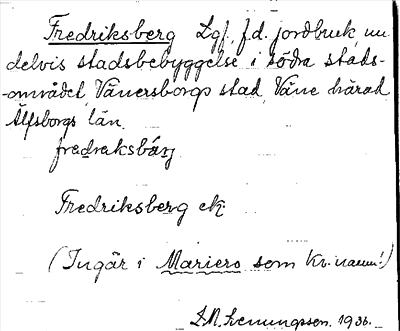 Fredriksberg Lgf, f.d. jordbruk, nu
delvis stadsbebyggelse i södra stads-
-området, Vänersborgs stad, Väne härad
Älfsborgs län.
fredreksbärj
Fredriksberg ek
(Ingår i Mariero som kv.namn!)
1936.